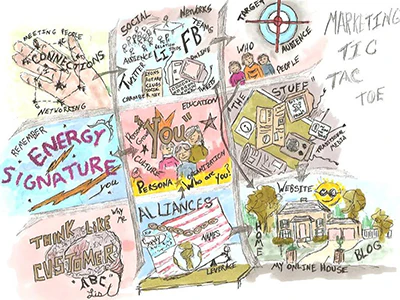 MARKETING
TIC
TAC
TOE
MEETING PEOPLE
CONNECTIONS
NETWORKING
SOCIAL NETWORKS
TEAMS
FB
LI
AUDIENCE
TWITTER
TARGET
AUDIENCE
WHO
PEOPLE
REMEMBER
ENERGY
SIGNATURE
you
EDUCATION
"YOU"
CULTURE
ORGANIZATION
PERSONA
Who are You?
"THE STUFF"
THINK LIKE
CUSTOMER
WHY ME
ABC
ALLIANCES
NAMES
LEVERAGE
WEBSITE
HOME
BLOG
MY ONLINE HOUSE